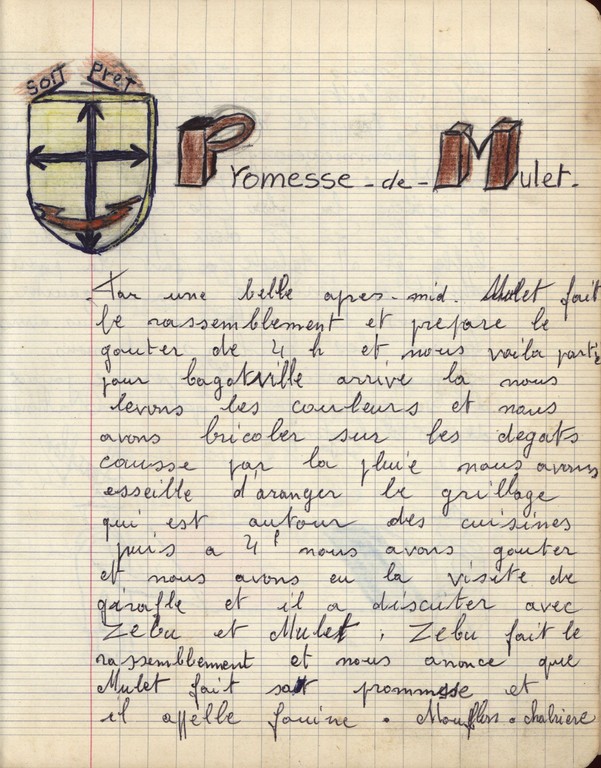 Soit Pret
Promesse - de - Mulet.
Par une belle apres-mid. Mulet fait
le rassemblement et prepare le
gouter de 4 h et nous voila parti
pour bagatville arrive la nous
levons les couleurs et nous
avons bricoler sur les degats
causse par la pluie nous avons
esseille d'aranger le grillage
qui est autour des cuisines
puis a 4h nous avons gouter
et nous avons eu la visite de
girafle et il a discuter avec
Zebu et Mulet, Zebu fait le
rassemblement et nous anonce que
Mulet fait sa prommesse et
il appelle fouine. Mouflon.